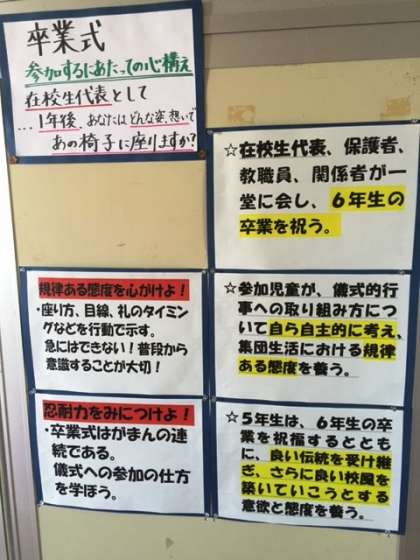 卒業式
参加するにあたっての心構え
在校生代表として
…1年後、あなたはどんな姿、想いで
あの椅子に座りますか?
☆在校生代表、保護者、
教職員、関係者が一
堂に会し、6年生の
卒業を祝う。
規律ある態度を心がけよ！
・座り方、目線、礼のタイミン
グなどを行動で示す。
急にはできない！普段から
意識することが大切！
☆参加児童が、儀式的行
事への取り組み方につ
いて自ら自主的に考え、
集団生活における規律
ある態度を養う。
忍耐力をみにつけよ！
・卒業式はがまんの連
続である。
儀式への参加の仕方
を学ぼう。
☆5年生は、6年生の卒
業を祝福するととも
に、良い伝統を受け継
ぎ、さらに良い校風を
築いていこうとする
意欲と態度を養う。